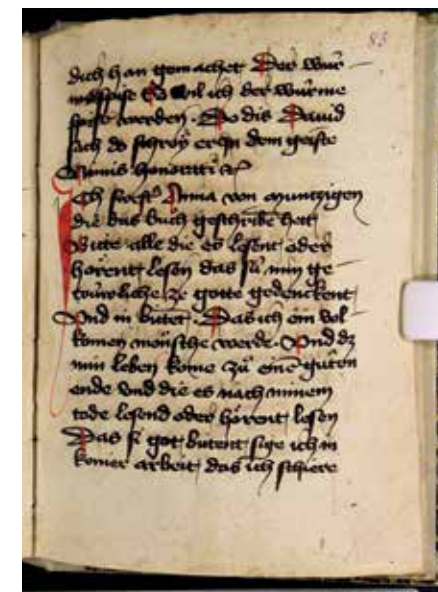 83
dich han gemachet Der wúr
mdspise So wil ich der wúrme
spise werden. Do dis David
sach do schreÿ er in dem geiste
Nimis honorati et
Ich swest Anna von muntzigen
die dis buch geschribē hett
Bitte alle die es lesent oder
hörent lesen das sú min ge
túwrliche ze gotte gedenckent
Vnd in bitten. Das ich ein vol
komen mensche werde. Vnd dz
min leben kome zú eine gúten
ende vnd die es nach minem
tode lesend oder hörent lesen
Das si got bittent sige ich in
keiner arbeit das ich schiere